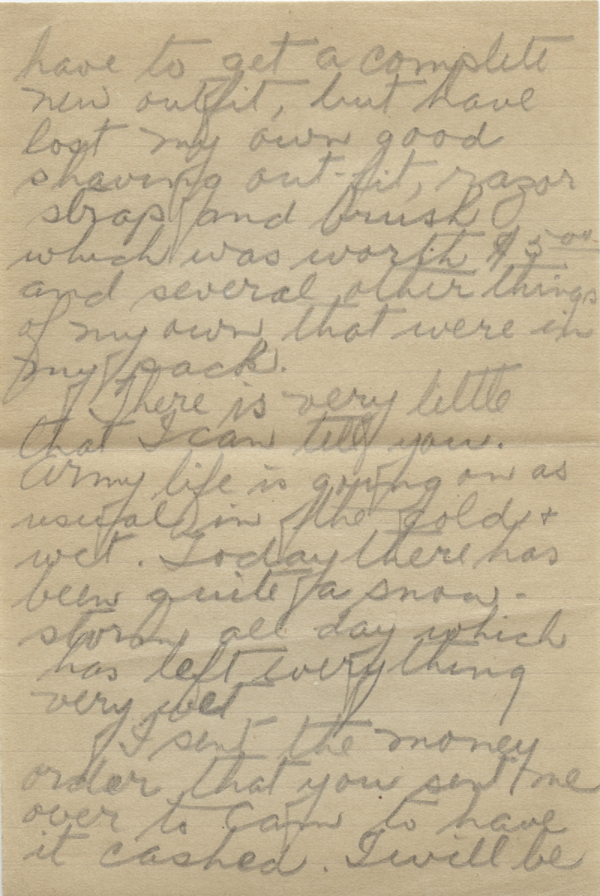 have to get a complete
new outfit, but have
lost my own good
shaving out-fit, razor
strap and brush
which was worth $5.00
and several other things
of my own that were in
my pack.
There is very little
that I can tell you.
Army life is going on as
usual in the cold &
wet. Today there has
been quite a snow-
storm all day which
has left everything
very wet
I sent the money
order that you sent me
over to Cam to have
it cashed. I will be